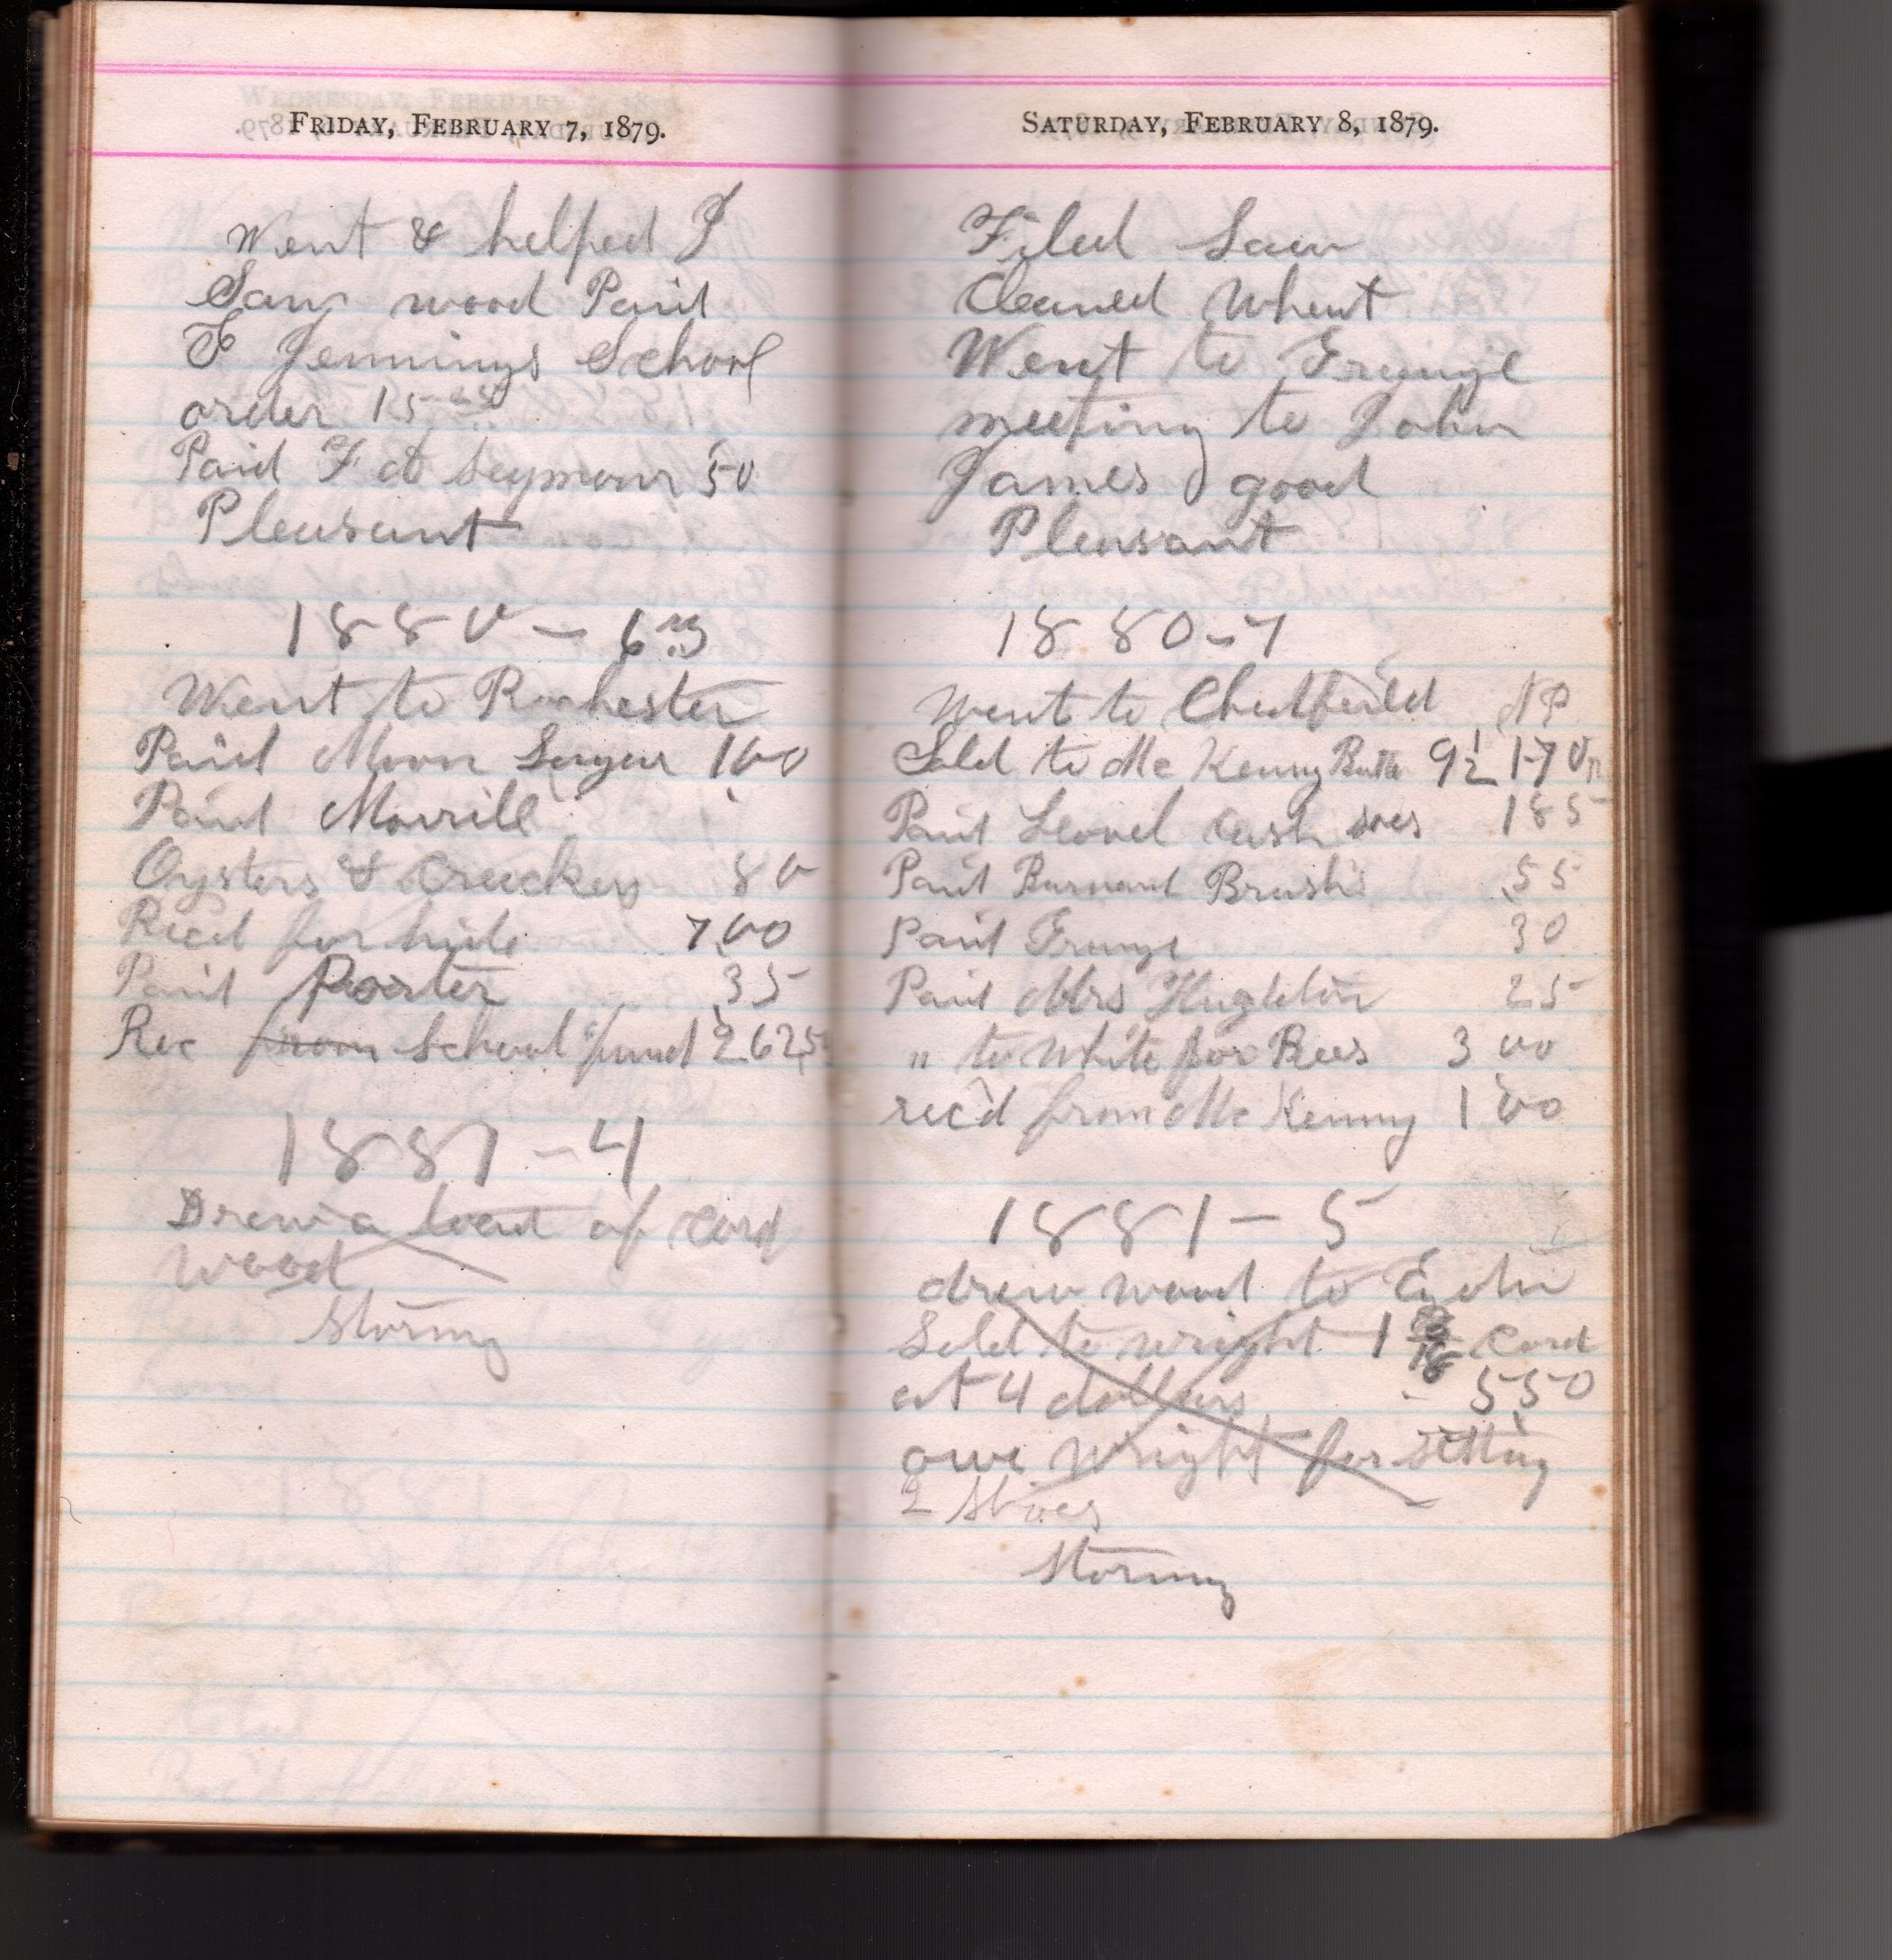 FRIDAY, FEBRUARY 7, 1879.
Went & helped J
Saw wood Paid
F Jennings School
order 15
Paid F at Seymour 50
Pleasant
1880 - 6
Went to Rochester
Paid Moon Sugar 1 00
Paid Morrill
Oysters & Crackers 80
Recd for hide 7,00
Paid Porter 35
Rec from School fund 26 25
1881 - 4
Drew a load of cord
wood
Stormy
SATURDAY, FEBRUARY 8, 1879.
Filed Saw
Cleaned Wheat
Went to Grange
meeting to John
James good
Pleasant
1880 - 7
Went to Chatfeild NP
Sold to Mc Kenny Butter 9½ 1 70
Paid Lovel Cash 1 85
Paid Barnard Brush 55
Paid Grange 30
Paid Mrs 25
" to White for Bees 3 00
rec'd from Mc Kenny 1 00
1881 - 5
drew wood to Eyota
Sold to Wright 1 cord
at 4 dollars - 5 50
owe Wright for setting
2 Shoes
Stormy